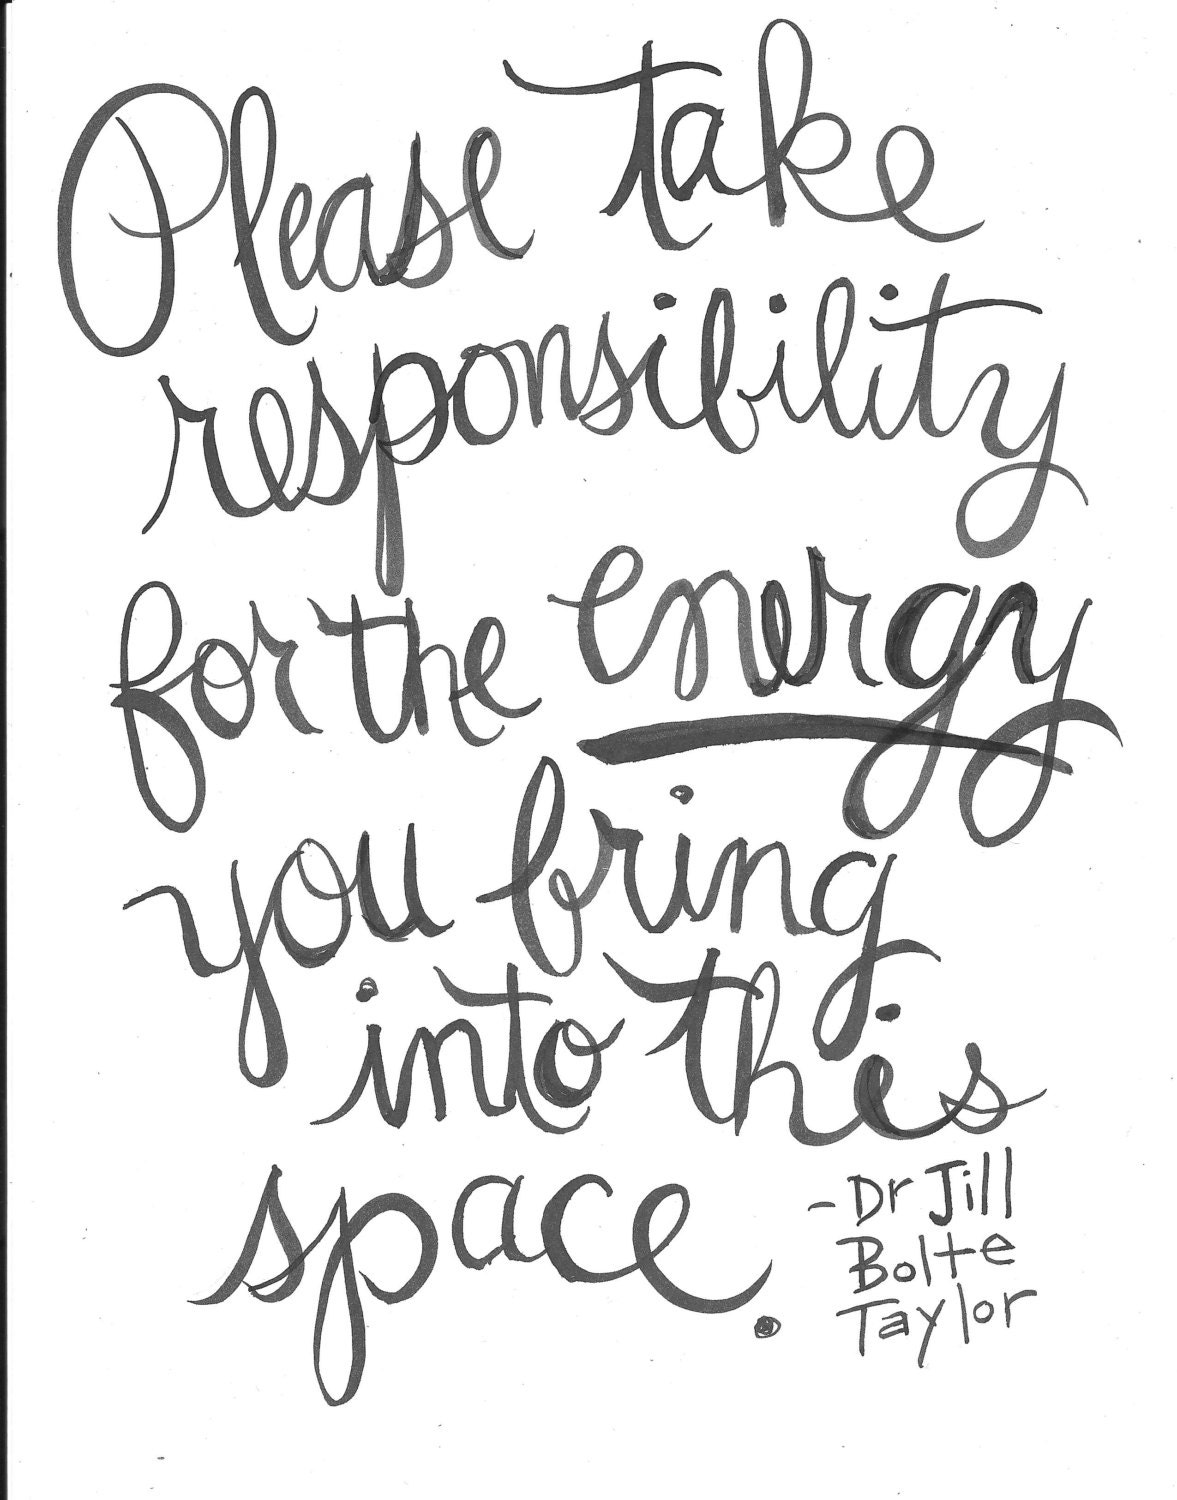 Please take
responsibility
for the energy
you bring
into this
space.
- Dr Jill
Bolte
Taylor